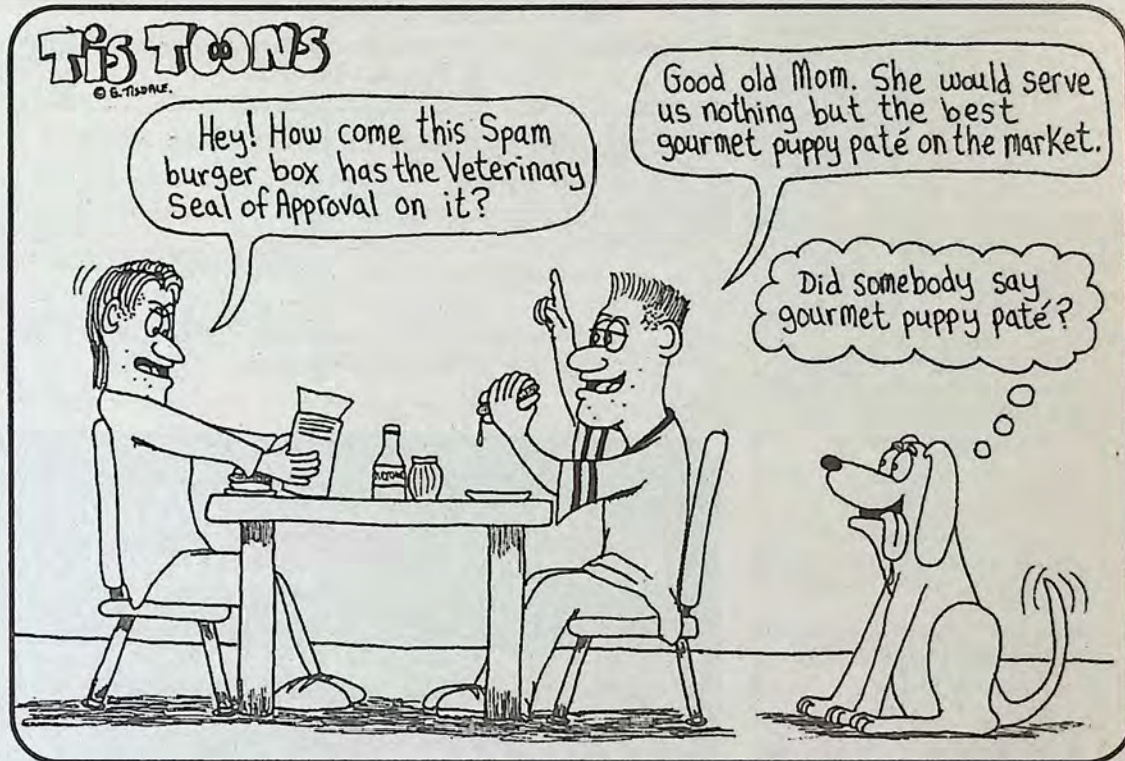 Tis TOONS
© G. TISDALE.
Hey! How come this Spam
burger box has the Veterinary
Seal of Approval on it?
Good old Mom. She would serve
us nothing but the best
gourmet puppy paté on the market.
Did somebody say
gourmet puppy paté?